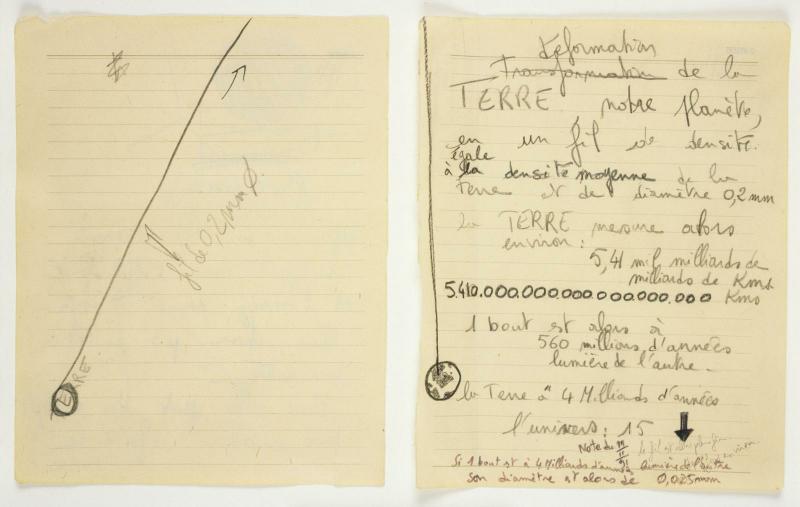 fil de 0,2 mm Ø
TERRE
déformation
Transformation de la
TERRE, notre planète,
en un fil de densité
égale
à la densité moyenne de la
Terre et de diamètre 0,2 mm
la TERRE mesure alors
environ :
5,41 mil milliards de
milliards de Kms
5.410.000.000.000.000.000.000 Kms
1 bout est alors à
560 millions d'années
lumière de l'autre.
la Terre a 4 Milliards d'années
l'univers : 15
Note du
Si 1 bout est à 4 Milliards d'années lumière de l'autre
son diamètre est alors de 0,025 mm